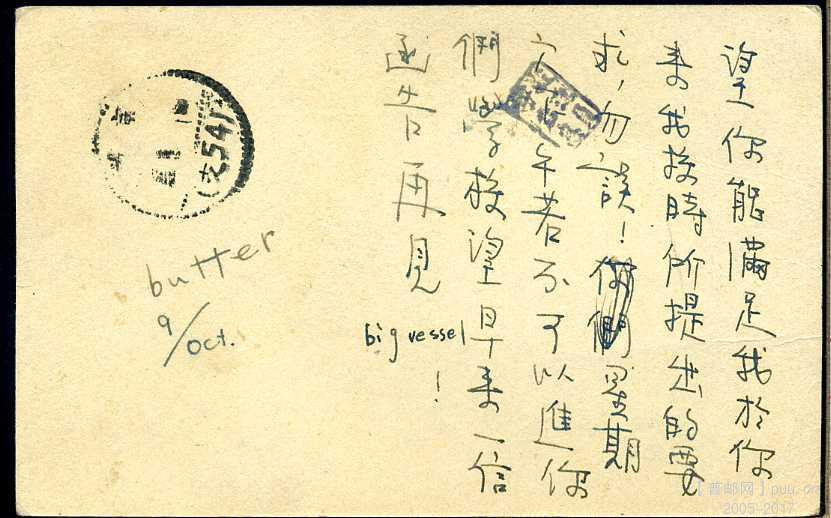 望你能滿足我於你
来我校時所提出的要
求，勿誤！你們星期
午若不可以進你
們學校望早来一信
函告再見
big vessel
!
butter
9/Oct.
京
(支54)
【普邮网】puu.cn
2005-2017